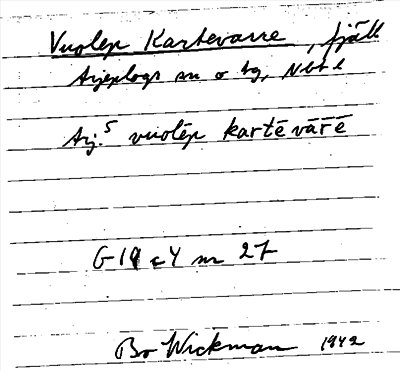 Vuolep Kartevarre, fjäll
Arjeplogs sn o tg, Nbtl
Arj.5 vuolēp kartē vārē
G 19 c 4 nr 27
Bo Wickman 1942